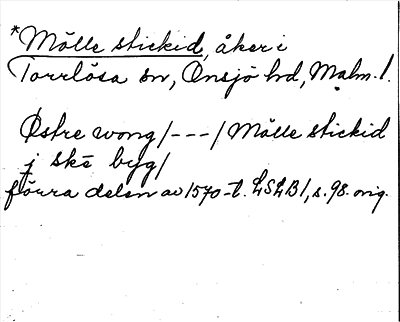 *Mölle stickid, åker i
Torrlösa sn, Onsjö hd, Malm. l.
Østre wong/---/Mölle stickid
j skē byg/
förra delen av 1570-t. LSLB 1, s. 98. orig.